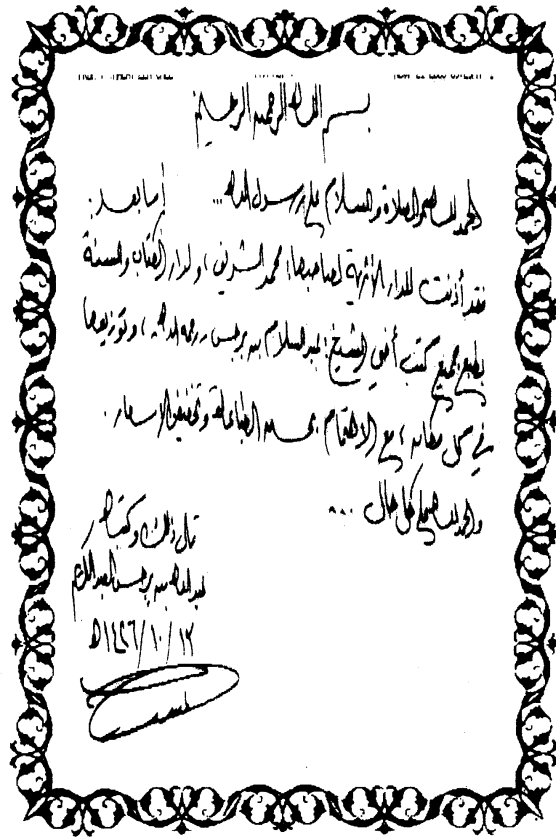 بسم الله الرحمن الرحيم
الحمد لله والصلاة والسلام على رسول الله ... أما بعد:
فقد أذنت للدار الأثرية لصاحبها: محمد الشرفي، ولدار الكتاب والسنة
بطبع جميع كتب أخي الشيخ: عبد السلام بن برجس رحمه الله، وتوزيعها
في كل مكان، مع الاهتمام بحسن الطباعة وتخفيض الأسعار.
والحمد لله على كل حال ...
قال ذلك وكتبه
عبد الله بن برجس العبد الكريم
١٢/١٠/١٤٢٦هـ